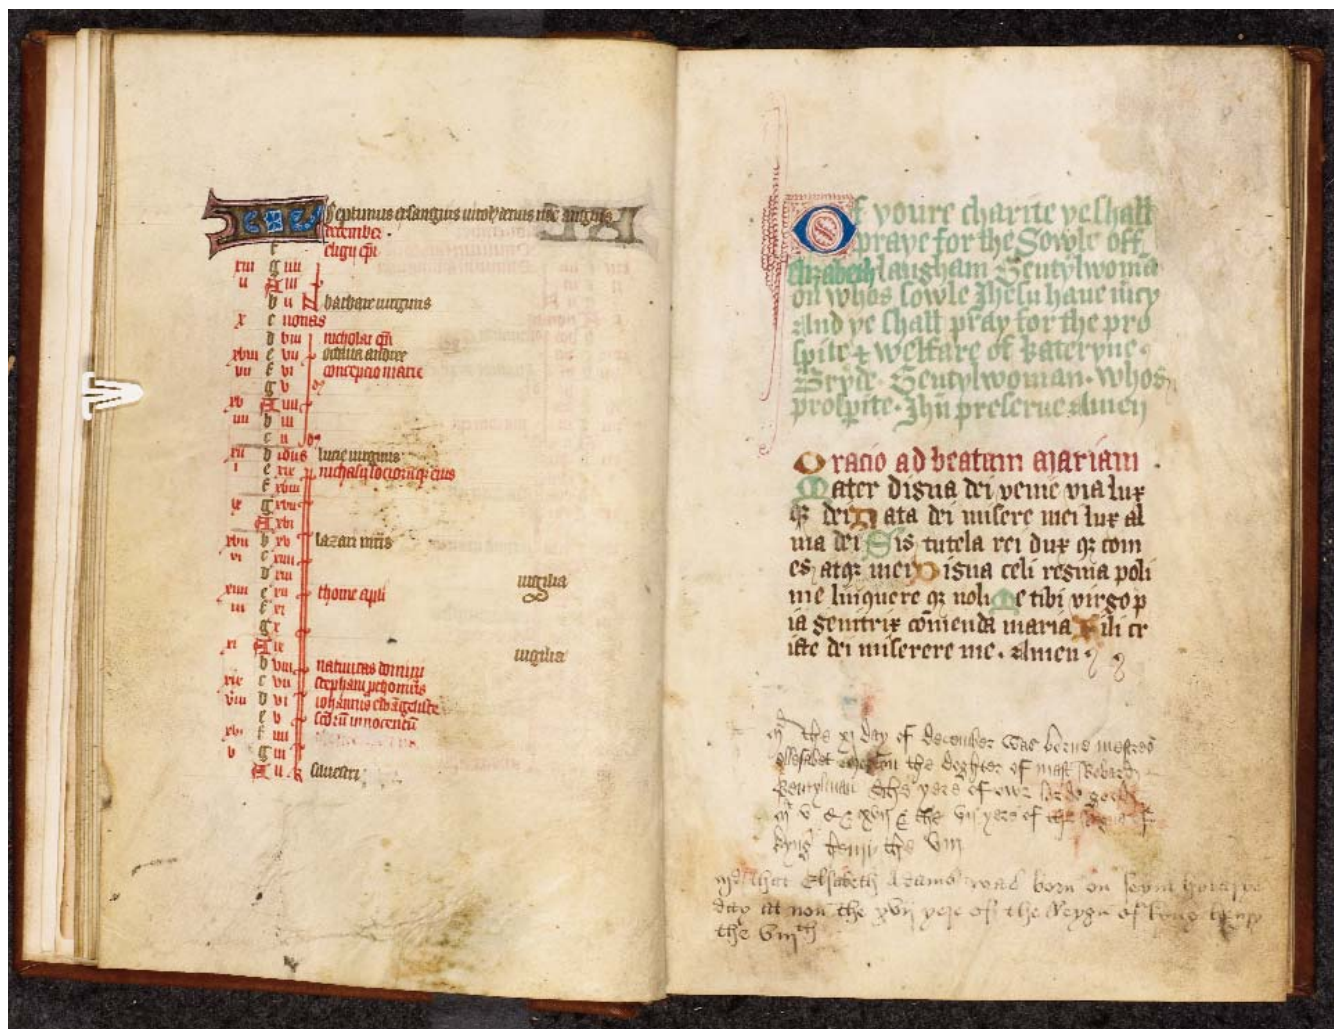 Septimus exsanguis virosus denus ut anguis
december
f eligii epi
xiii g iiii
ii A iii
b ii barbare virginis
x c nonas
d viii nicholai epi
xviii e vii octava andree
vii f vi concepcio marie
g v
xv A iiii
iiii b iii
c ii
xii d idus lucie virginis
i e xix nichasii sociorumque eius
f xviii
ix g xvii
A xvi
xvii b xv lazari
vi c xiiii
d xiii vigilia
xiiii e xii thome apli
iii f xi
g x
xi A ix vigilia
b viii nativitas domini
xix c vii stephani
viii d vi iohannis
e v innocentum
xvi f iiii
v g iii
A ii silvestri
Of youre charite ye shall
praye for the Sowle off
Elizabeth langham Gentylwoma
on whos sowle Jhesu have mcy
And ye shall pray for the pro
spite & welfare of kateryne
Bryde. Gentylwoman. whos
prospite. Jhu preserve Amen
Oracio ad beatam Mariam.
Mater digna dei venie via lux
q dei Nata dei misere mei lux al
ma dei Sis tutela rei dux q com
es atq mei Digna celi regina poli
me linquere q noli Me tibi virgo p
ia genitrix comenda maria Fili cr
iste dei miserere me. Amen
the xi day of december was borne mestres
ellesabet the doghter of mast Robard
the yere of owr lorde
the vii yere of the
kyng henry the viii
md that Elsabeth Adams was born on
day at non the xvii yere of the Reygn of kyng henry
the viiith